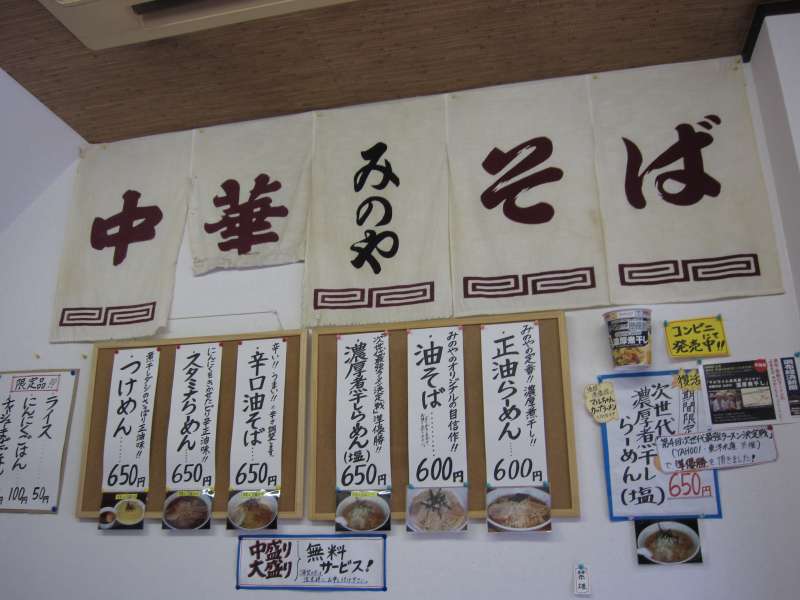 中華
みのや
そば
みのやの定番!! 濃厚煮干し!!
・正油らーめん
600円
みのやのオリジナルの自信作!!
・油そば
600円
次世代最強ラーメン決定戦 準優勝!!
・濃厚煮干しらーめん(塩)
650円
辛い!! うまい!!
・辛口油そば
650円
・スタミナらーめん
650円
煮干しダシのさっぱり正油味!!
・つけめん
650円
限定品!!
ライス
にんにくごはん
50円
100円
中盛り
大盛り
無料
サービス!
コンビニ
にて
発売中!!
濃厚煮干し
復活
期間限定
次世代
濃厚煮干し
らーめん(塩)
650円
「第4回次世代最強ラーメン決定戦」
で準優勝を頂きました!